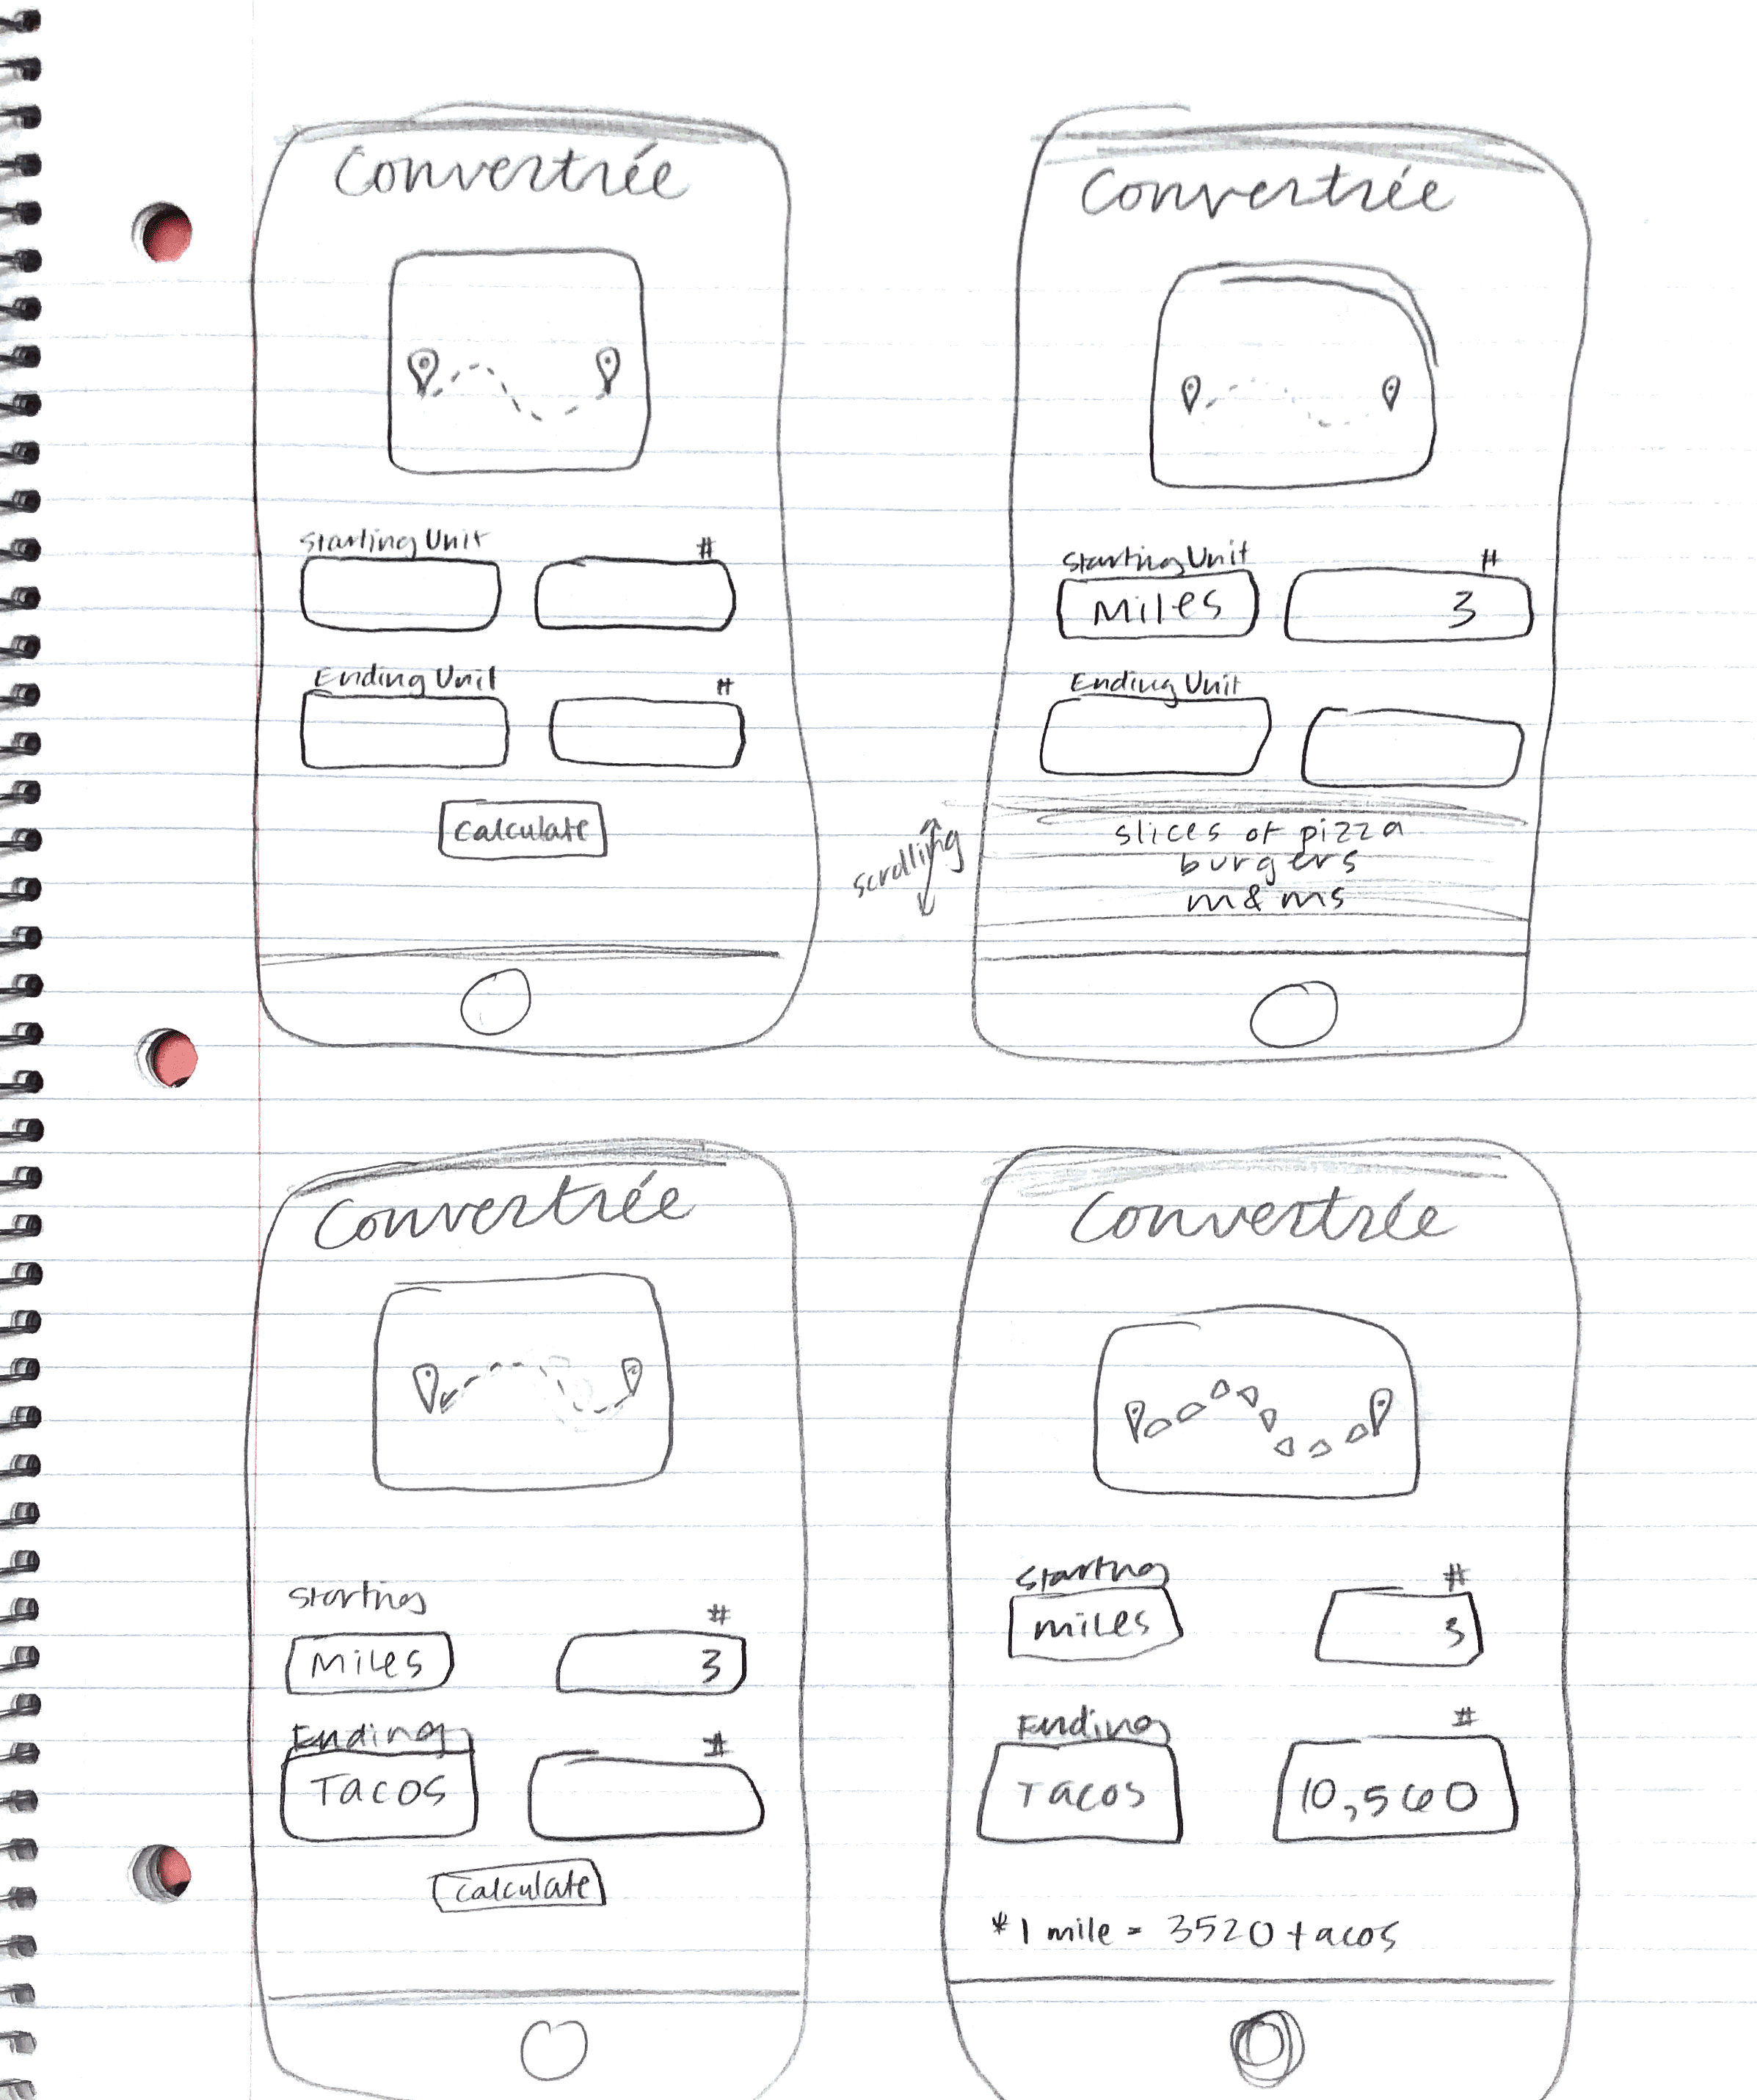 Convertrée
Starting Unit #
Ending Unit #
Calculate
Convertrée
Starting Unit #
Miles 3
Ending Unit
scrolling
slices of pizza
burgers
m&ms
Convertrée
Starting #
Miles 3
Ending #
Tacos
Calculate
Convertrée
Starting #
miles 3
Ending #
Tacos 10,560
*1 mile = 3520 tacos